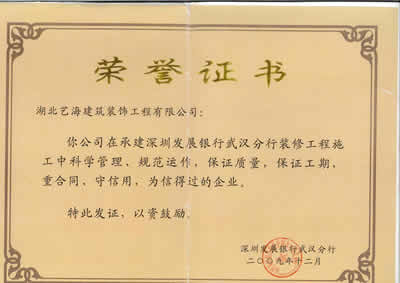 荣誉证书
湖北艺海建筑装饰工程有限公司：
你公司在承建深圳发展银行武汉分行装修工程施
工中科学管理、规范运作，保证质量，保证工期，
重合同、守信用，为信得过的企业。
特此发证，以资鼓励。
深圳发展银行武汉分行
二〇〇九年十二月